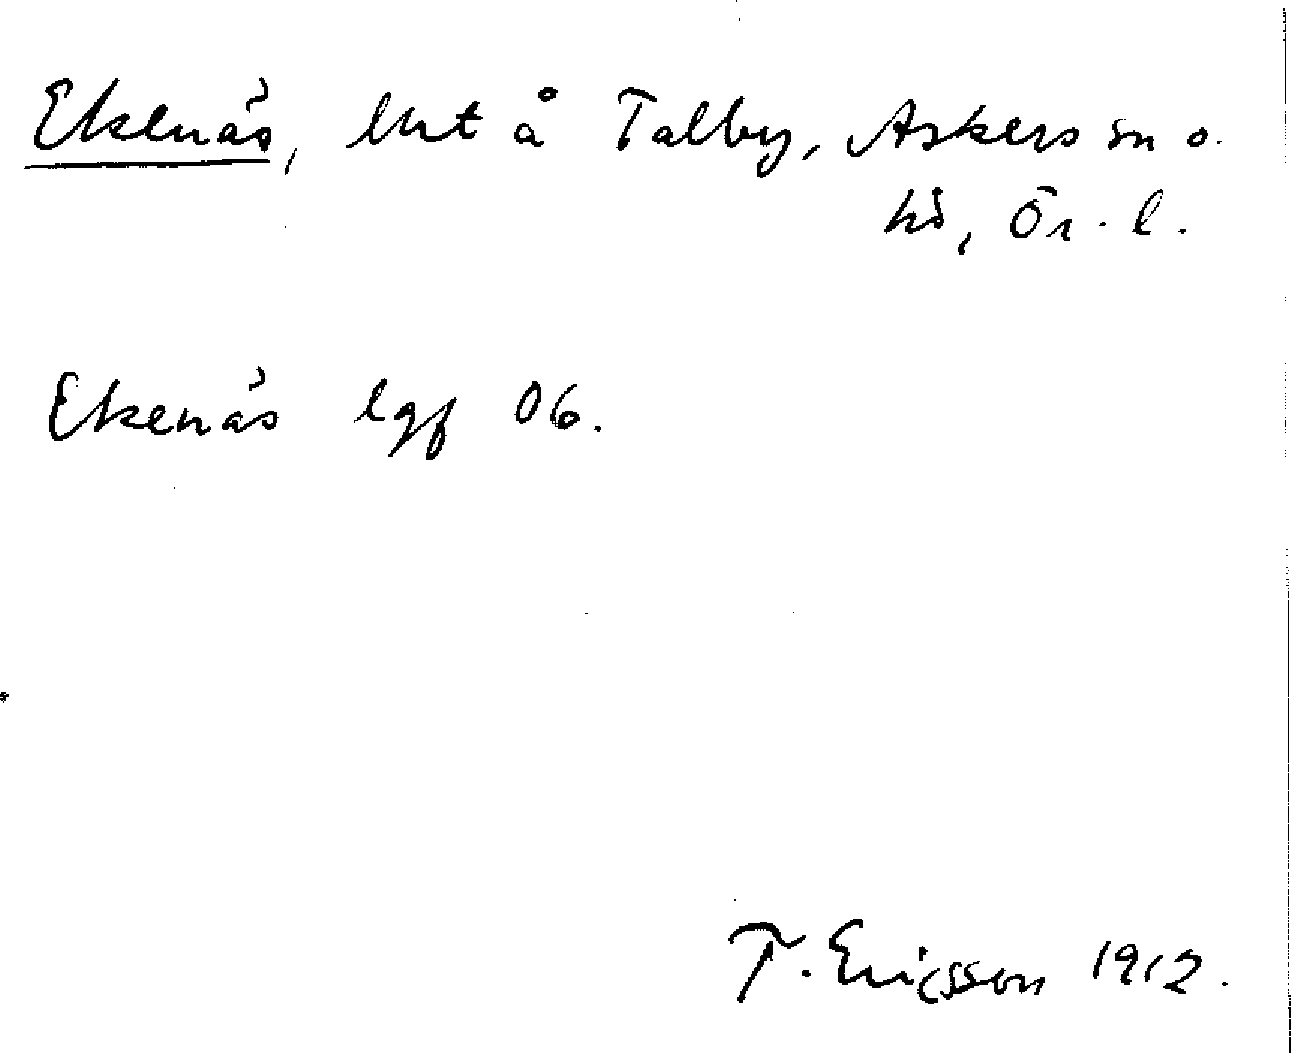 Ekenäs, lht å Talby, Askers sn o.
hd, Ör. l.
Ekenäs lgf 06.
T. Ericsson 1912.